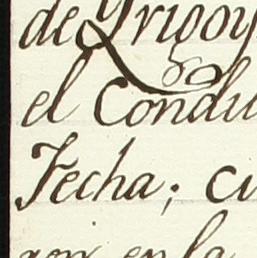 de Yrigoy
el Condu
Fecha; cu
ron en la